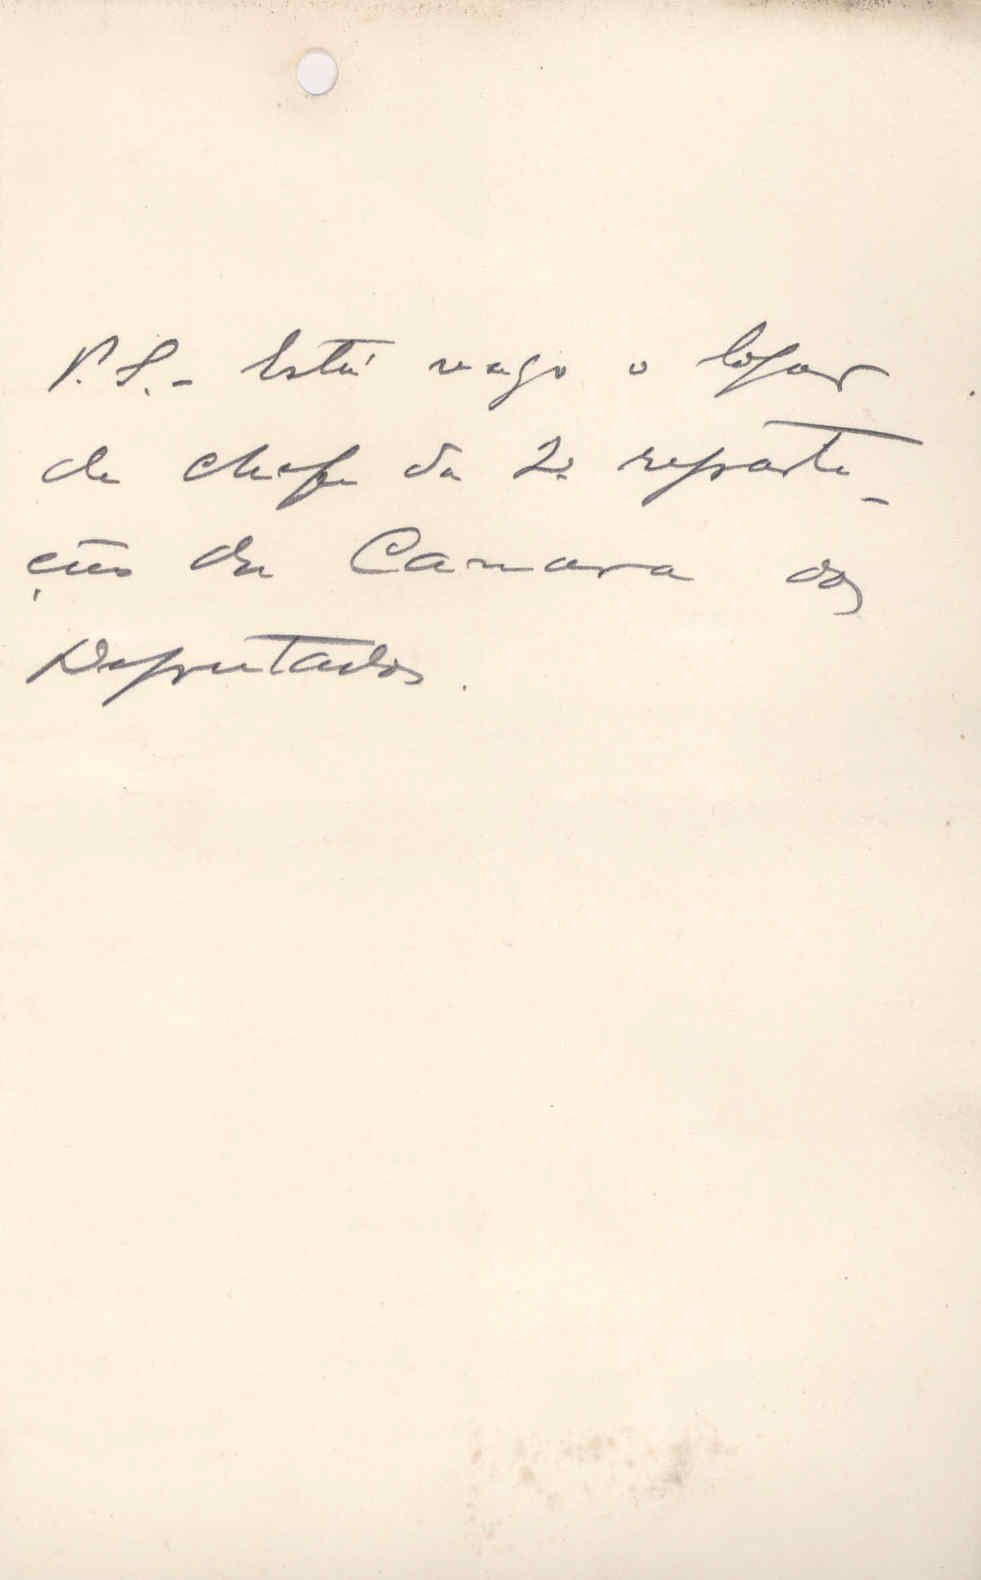 P.S. - Está vago o logar
de chefe da 2ª reparti-
ção da Camara dos
Deputados.